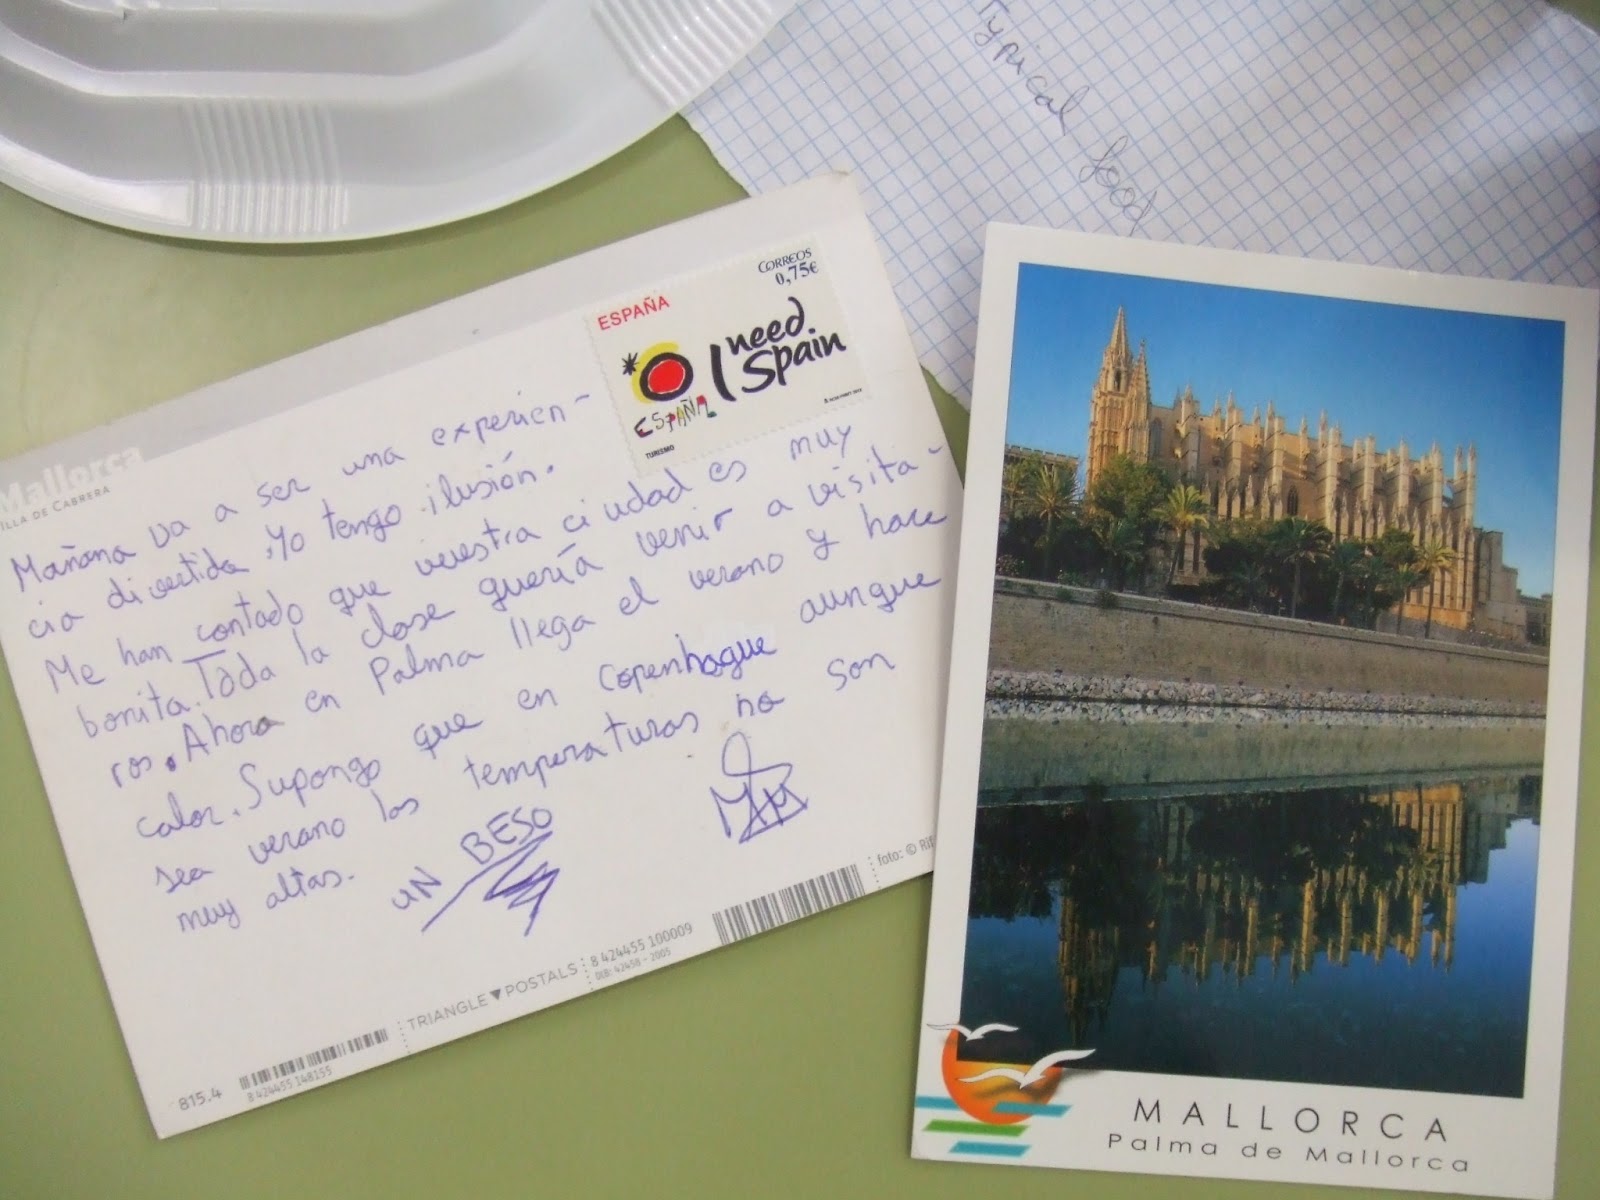 Typical food
CORREOS
0,75€
ESPAÑA
I need
Spain
ESPAÑA
TURISMO
Mallorca
ILLA DE CABRERA
Mañana va a ser una experien-
cia divertida, Yo tengo ilusión.
Me han contado que vuestra ciudad es muy
bonita. Toda la clase quería venir a visita-
ros. Ahora en Palma llega el verano y hace
calor. Supongo que en Copenhague aunque
sea verano las temperaturas no son
muy altas.
UN BESO
foto: © 
TRIANGLE▼POSTALS
8 424455 100009
DLB: 42458 - 2005
815.4
8 424455 148155
MALLORCA
Palma de Mallorca